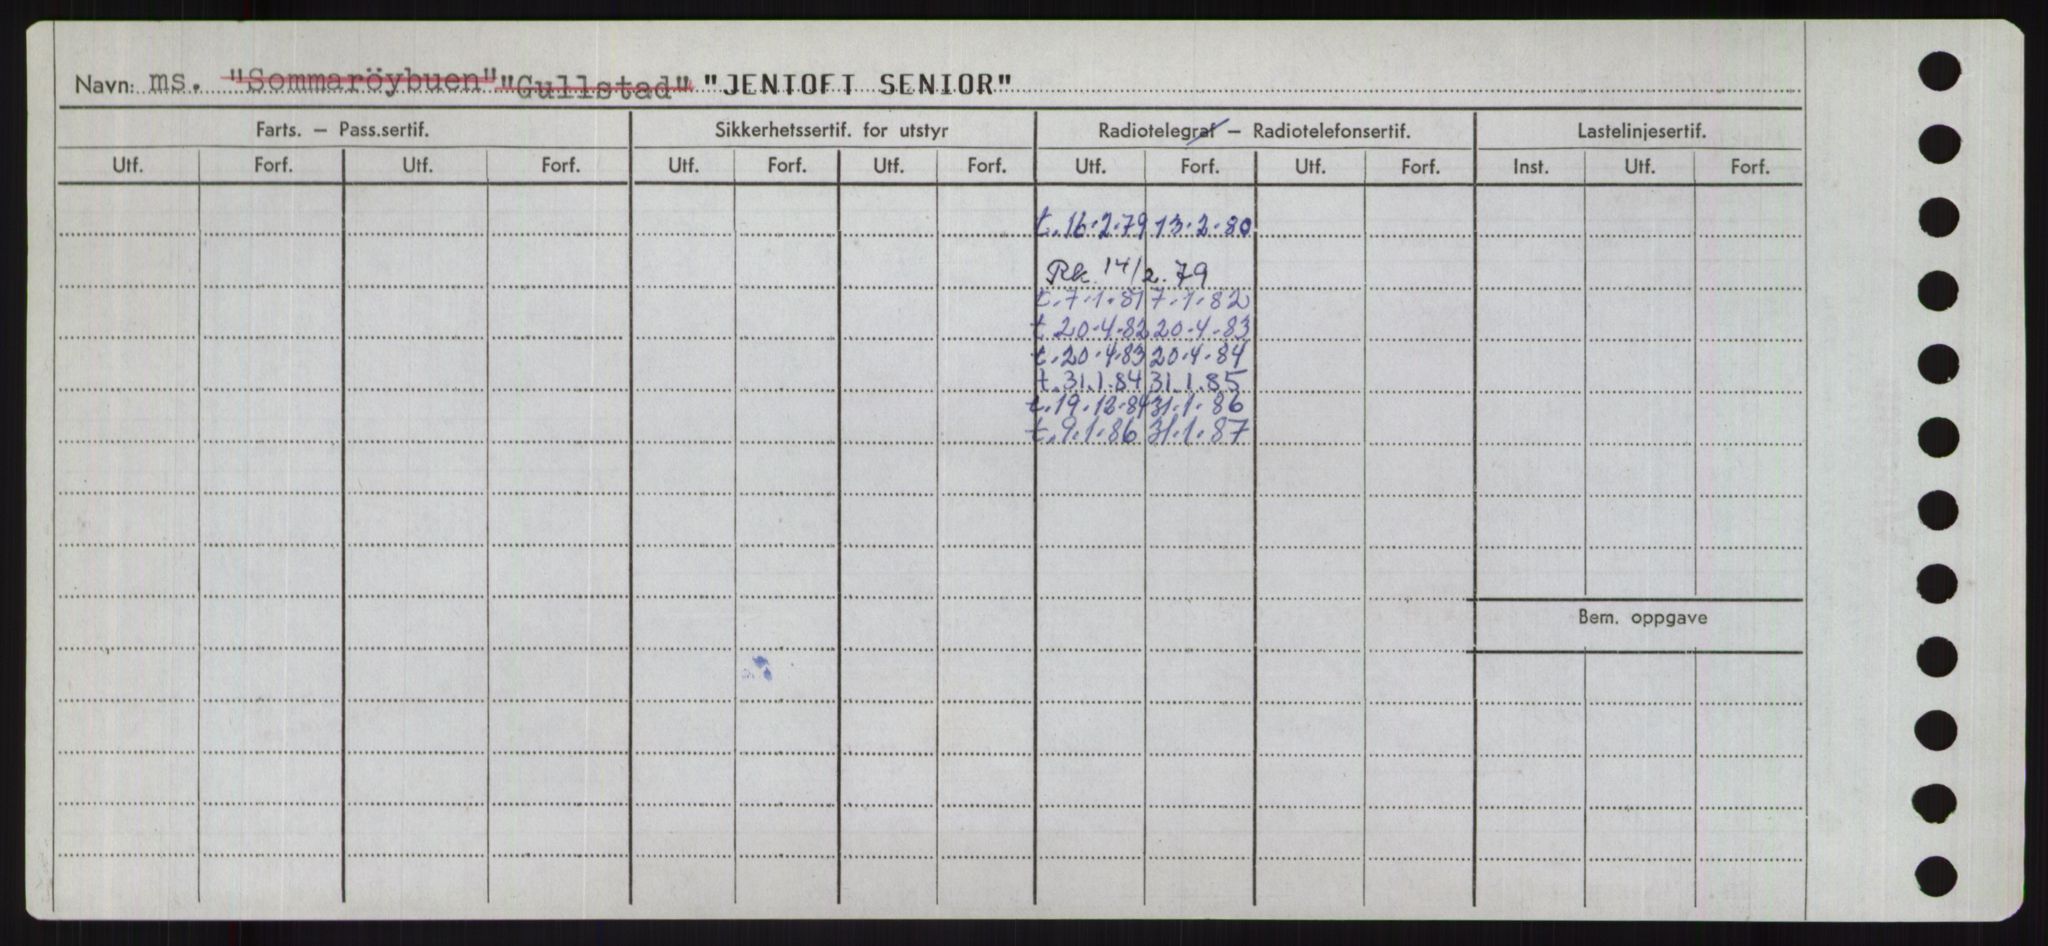 Navn: ms. "Sommaröybuen" "Gullstad" "JENTOFT SENIOR"
Farts. – Pass.sertif. Sikkerhetssertif. for utstyr Radiotelegraf – Radiotelefonsertif. Lastelinjesertif.
Utf. Forf. Utf. Forf. Utf. Forf. Utf. Forf. Utf. Forf. Utf. Forf. Inst. Utf. Forf.
t. 16.2.79 13.2.80
Rk. 14/2.79
t. 7.1.81 7.1.82
t. 20.4.82 20.4.83
t. 20.4.83 20.4.84
t. 31.1.84 31.1.85
t. 19.12.84 31.1.86
t. 9.1.86 31.1.87
Bem. oppgave